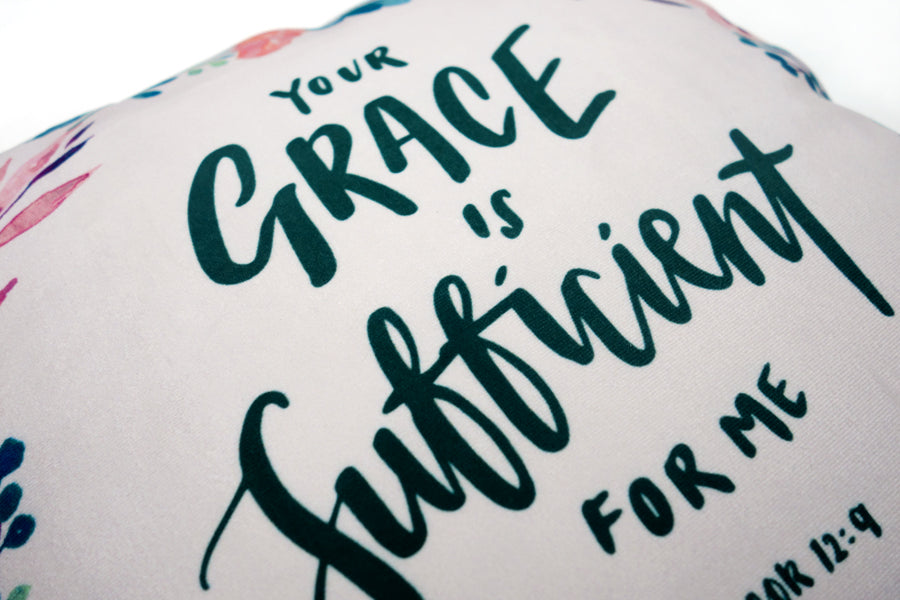 YOUR
GRACE
is
Sufficient
FOR ME
12:9